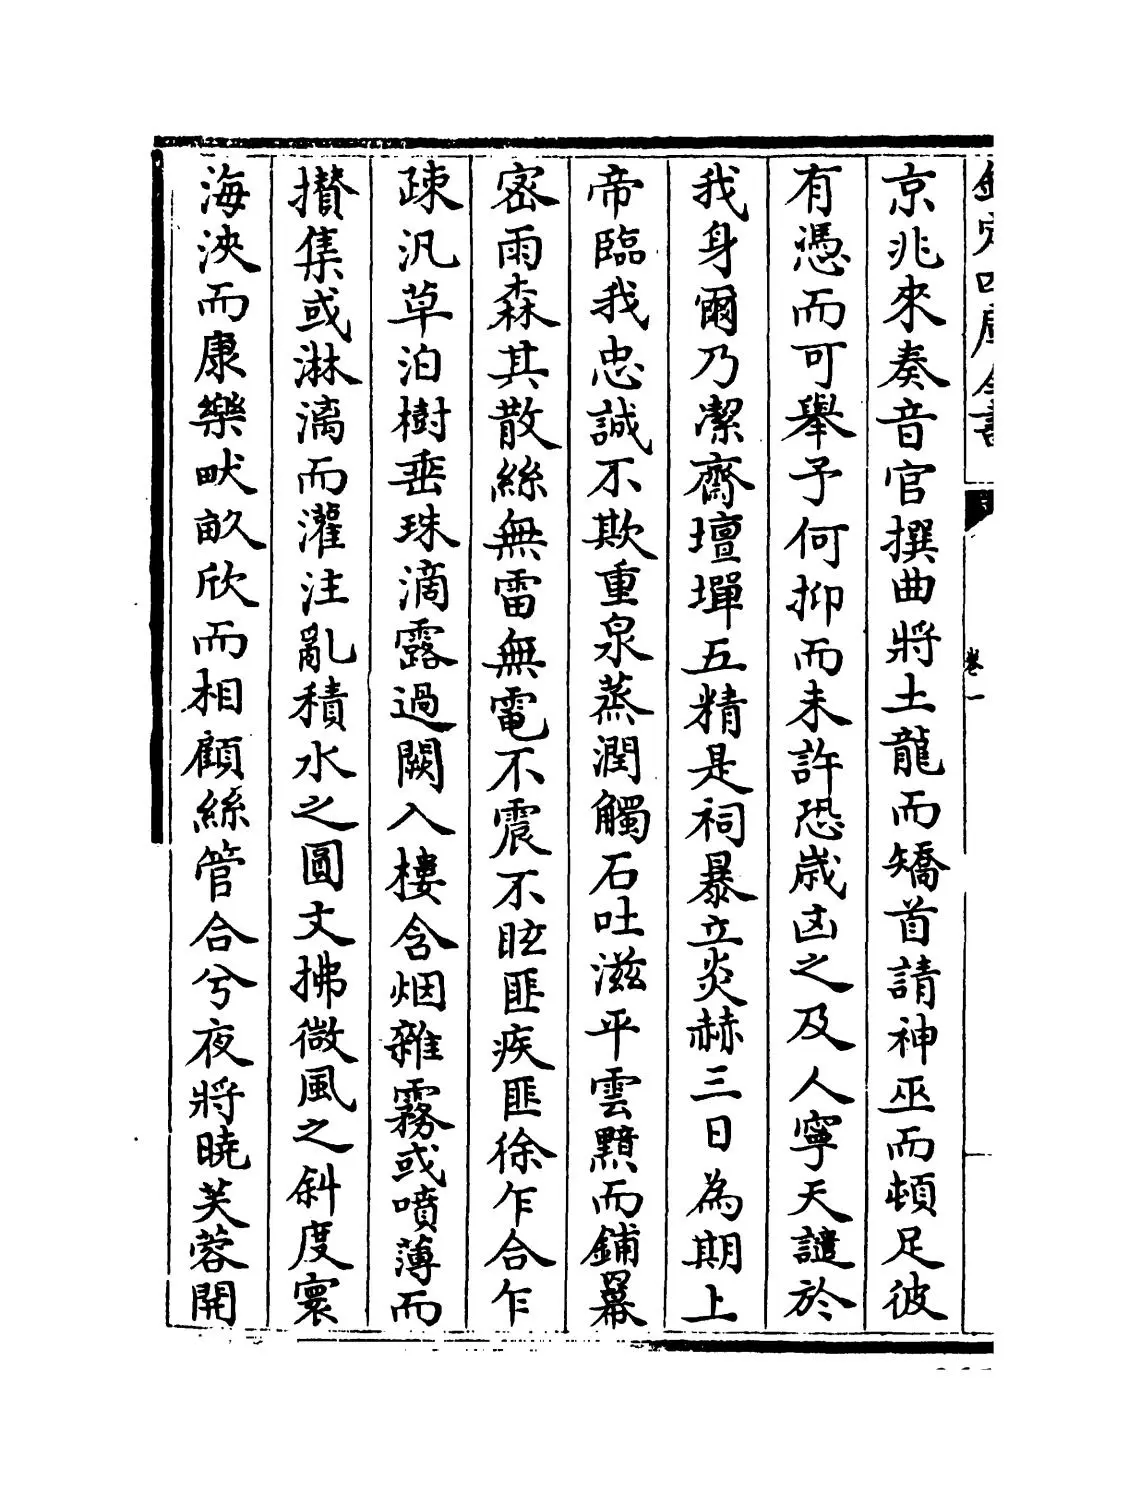 欽定四庫全書
卷一
京兆來奏音官撰曲將土龍而矯首請神巫而頓足彼
有憑而可舉予何抑而未許恐歲凶之及人寧天譴於
我身爾乃潔齋壇墠五精是祠暴立炎赫三日為期上
帝臨我忠誠不欺重泉蒸潤觸石吐滋平雲黯而鋪羃
密雨森其散絲無雷無電不震不眩匪疾匪徐乍合乍
疎汎草泊樹垂珠滴露過闕入樓含烟雜霧或噴薄而
攅集或淋漓而灌注亂積水之圓文拂微風之斜度寰
海浹而康樂畎畝欣而相顧絲管合兮夜將曉芙蓉開